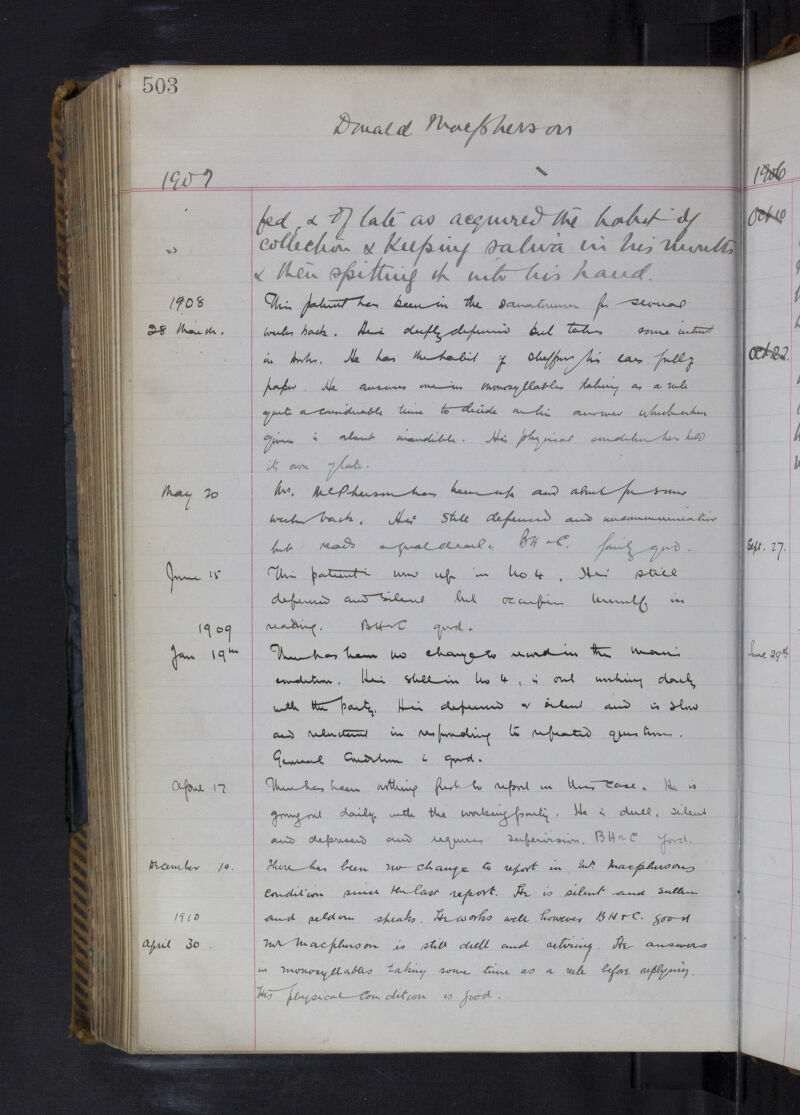 503
Donald Macpherson
1907
fed, & of late as acquired the habit of
collection & keeping saliva in his mouth
& then spitting it into his hand.
1908
This patient has been in the Sanatorium for several
28 March.
weeks back. He is deeply depressed but takes some interest
in books. He has the habit of stuffing his ears full of
paper. He answers one in monosyllables taking as a rule
quite a considerable time to decide on his answer which when
given is almost inaudible. His physical condition has held
its own of late.
May 20
Mr. McPherson has been up and about for some
weeks back. He is still depressed and uncommunicative
but reads a great deal. BH & C. fairly good.
June 15
This patient is now up in No 4. He is still
depressed and silent but occupies himself in
reading. BH & C good.
1909
Jan 19th
There has been no change to record in this man's
condition. He is still in No 4, is out working daily
with the party. He is depressed & silent and is slow
and reluctant in responding to repeated questions.
General Condition is good.
April 17
There has been nothing fresh to report in this case. He is
going out daily with the working party. He is dull, silent
and depressed and requires supervision. BH & C good.
December 10.
There has been no change to report in Mr Macphersons
condition since the last report. He is silent and sullen
and seldom speaks. He works well however BH & C. good
1910
April 30.
Mr Macpherson is still dull and retiring. He answers
in monosyllables taking some time as a rule before replying.
His physical condition is good.
1906
Oct 10
Oct 22.
Sept. 27.
June 29th